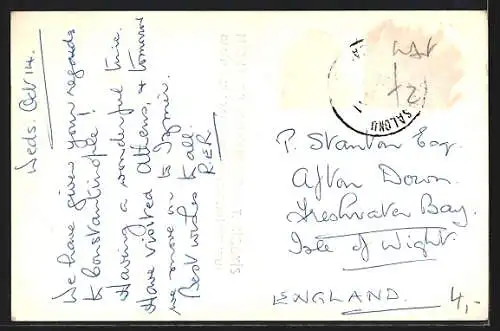 Weds. Oct 14.
We have given your regards
to Constantinople!
Having a wonderful time.
Have visited Athens, & tomorrow
we move on to Izmir.
Best wishes to all.
R.E.R.
P. Stanton Esq.
Afton Down.
Freshwater Bay.
Isle of Wight
ENGLAND.
4,-